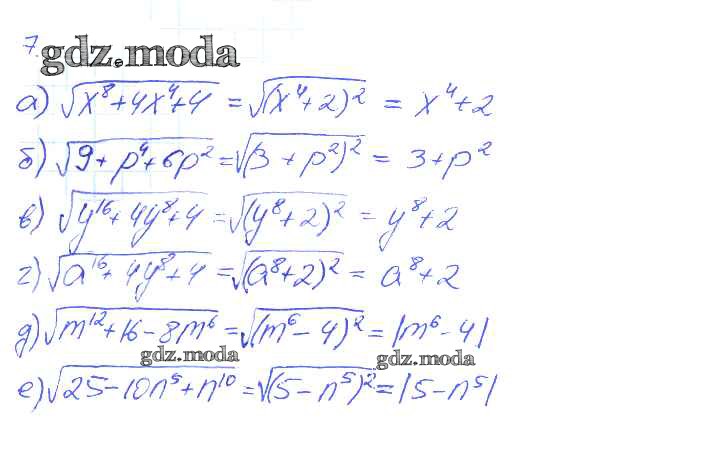 7.
gdz.moda
а) √(x⁸+4x⁴+4) = √((x⁴+2)²) = x⁴+2
б) √(9+p⁴+6p²) = √((3+p²)²) = 3+p²
в) √(y¹⁶+4y⁸+4) = √((y⁸+2)²) = y⁸+2
г) √(a¹⁶+4y⁸+4) = √((a⁸+2)²) = a⁸+2
д) √(m¹²+16-8m⁶) = √((m⁶-4)²) = |m⁶-4|
gdz.moda gdz.moda
е) √(25-10n⁵+n¹⁰) = √((5-n⁵)²) = |5-n⁵|